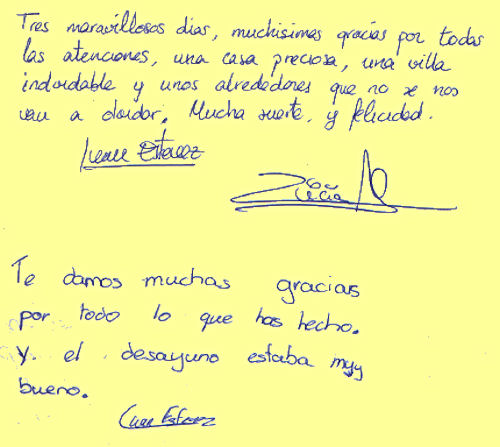 Tres maravillosos dias, muchisimas gracias por todas
las atenciones, una casa preciosa, una villa
indovidable y unos alrededores que no se nos
van a olvidar. Mucha suerte, y felicidad.
Te damos muchas gracias
por todo lo que has hecho.
Y el desayuno estaba muy
bueno.